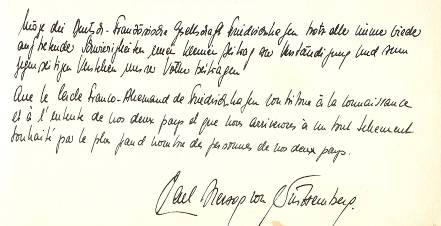 Möge die Deutsch-Französische Gesellschaft Friedrichshafen trotz aller immer wieder
auftretender Schwierigkeiten einen kleinen Beitrag zur Verständigung und zum
gegenseitigen Verstehen unserer Völker beitragen
Que le Cercle Franco-Allemand de Friedrichshafen contribue à la connaissance
et à l'entente de nos deux pays et que nous arriverons à un tout
souhaité par le plus grand nombre des personnes de nos deux pays.
Carl Herzog von Württemberg.